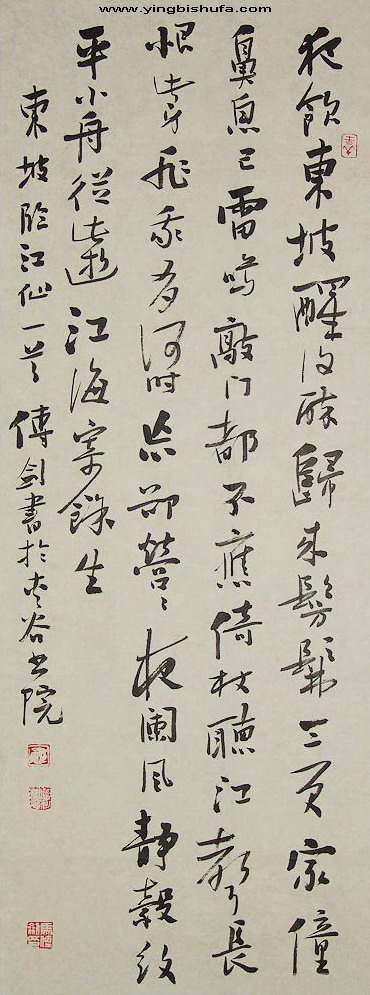 www.yingbishufa.com
夜飲東坡醒復醉歸來髣髴三更家僮
鼻息已雷鳴敲門都不應倚杖聽江聲長
恨此身非我有何時忘卻營營夜闌風靜縠紋
平小舟從此逝江海寄餘生
東坡臨江仙一首 傅劍書於 谷書院